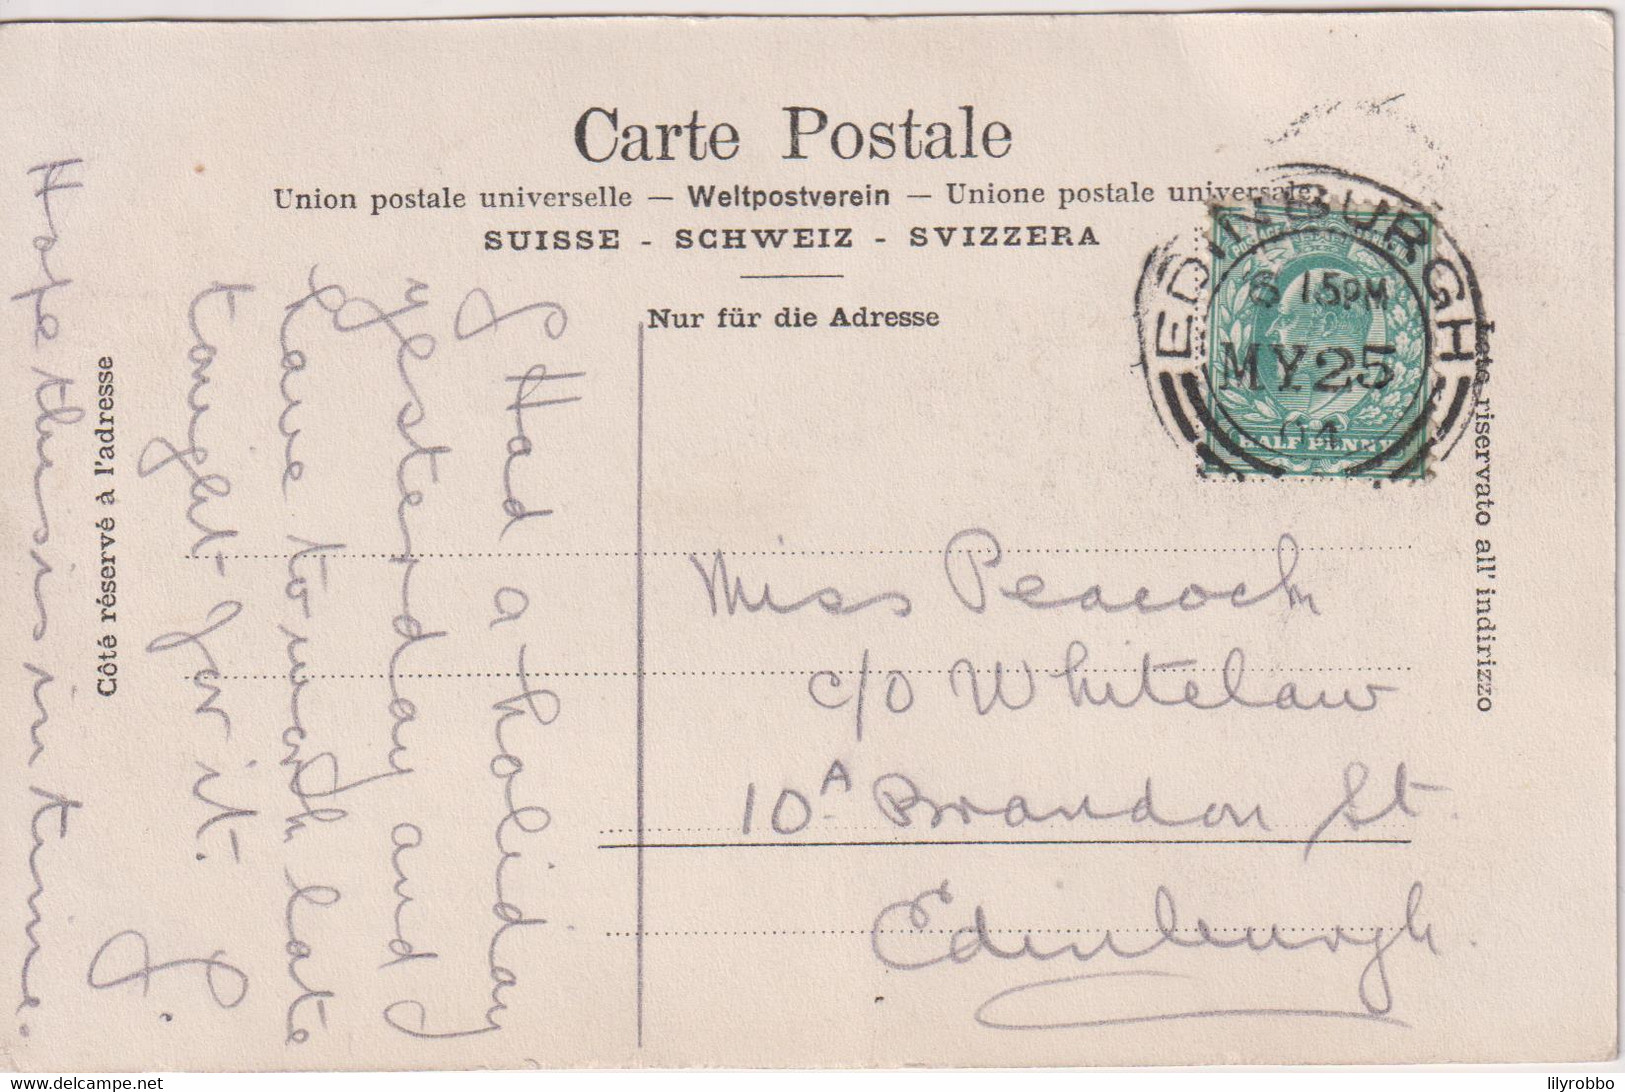 Carte Postale
Union postale universelle — Weltpostverein — Unione postale universale
SUISSE - SCHWEIZ - SVIZZERA
Nur für die Adresse
Côté réservé à l'adresse
Lato riservato all' indirizzo
EDINBURGH
6 15PM
MY 25
04
HALF PENNY
I Had a holiday
yesterday and
have to work late
tonight for it.
Hope this is in time.
Miss Peacock
c/o Whitelaw
10A Brandon St
Edinburgh.
lilyrobbo